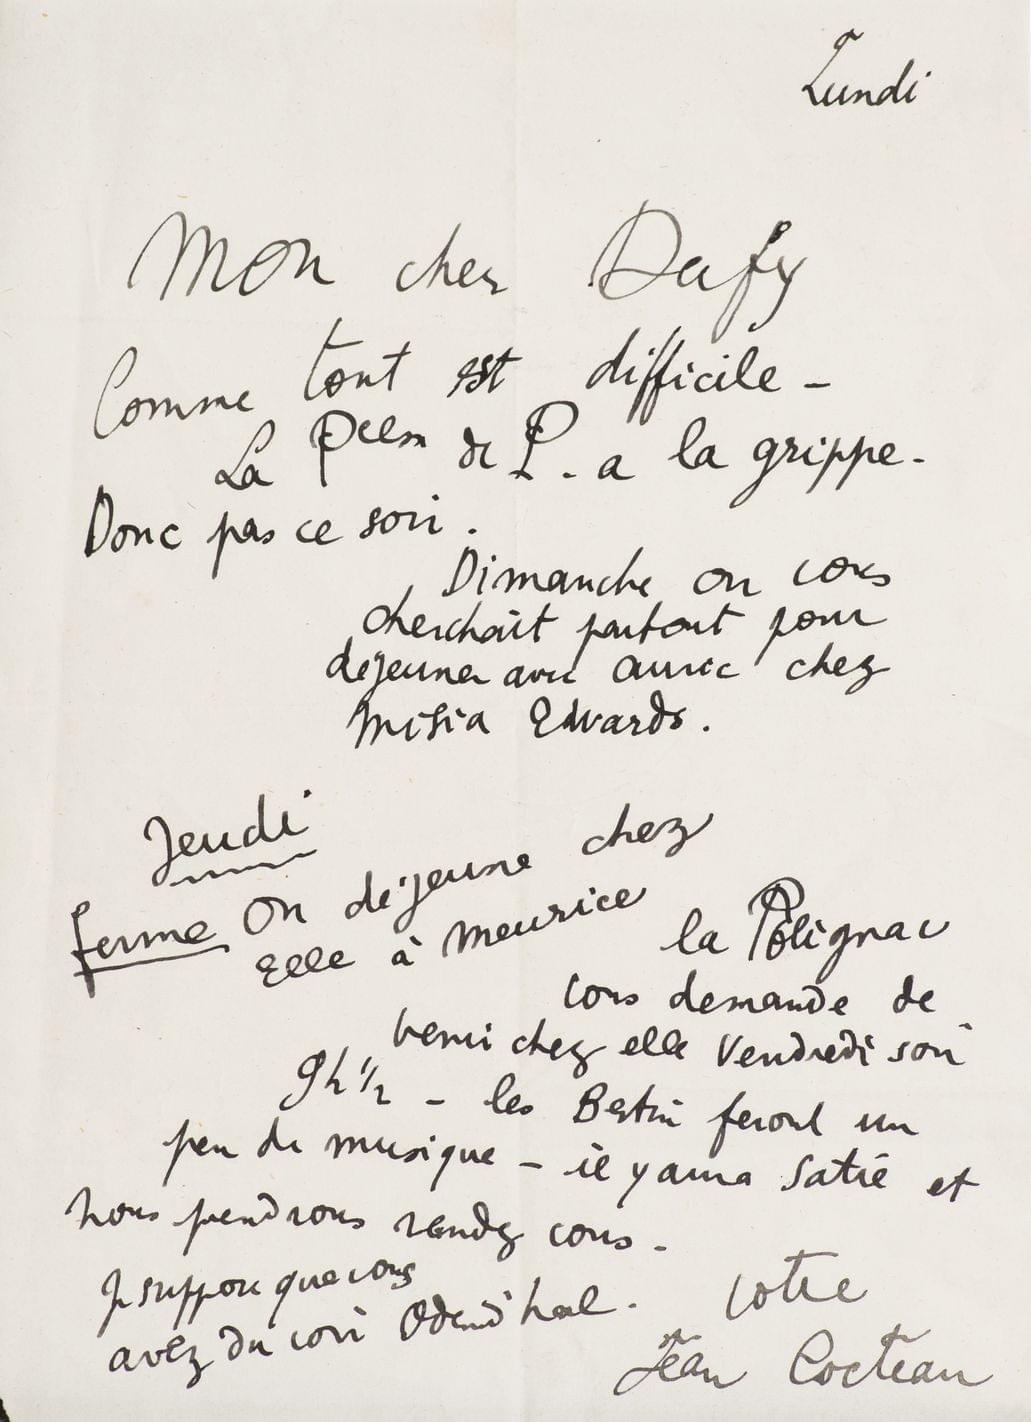 Lundi
Mon cher Dufy
Comme tout est difficile –
La Pcesse de P. a la grippe.
Donc pas ce soir.
Dimanche on vous
cherchait partout pour
déjeuner avec Auric chez
Misia Edwards.
Jeudi
ferme on déjeune chez
Elle à Meurice
la Polignac
vous demande de
venir chez elle Vendredi soir
9h ½ – les Bertin feront un
peu de musique – il y aura Satie et
nous prendrons rendez vous –
Je suppose que vous
avez du voir Odend'hal.
votre
Jean Cocteau